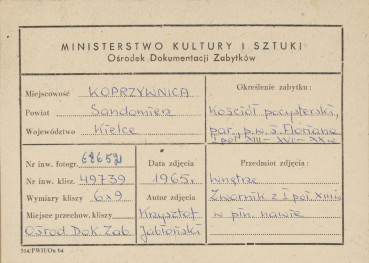 MINISTERSTWO KULTURY I SZTUKI
Ośrodek Dokumentacji Zabytków
Miejscowość KOPRZYWNICA
Powiat Sandomierz
Województwo Kielce
Określenie zabytku:
Kościół pocysterski,
par. p.w. Ś. Floriana
I poł XIII – XVII – XX w
Nr inw. fotogr.
Nr inw. klisz. 49739
Wymiary kliszy 6x9
Miejsce przechow. kliszy
Ośrod. Dok. Zab
Data zdjęcia
1965.
Autor zdjęcia
Krzysztof
Jabłoński
Przedmiot zdjęcia:
Wnętrze
Zwornik z I poł. XIII w
w płn. nawie